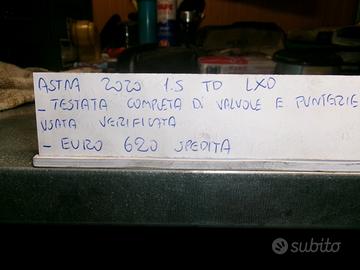 ASTRA 2020 1.5 TD LXD
- TESTATA COMPLETA DI VALVOLE E PUNTERIE
USATA VERIFICATA
- EURO 620 SPEDITA
subito